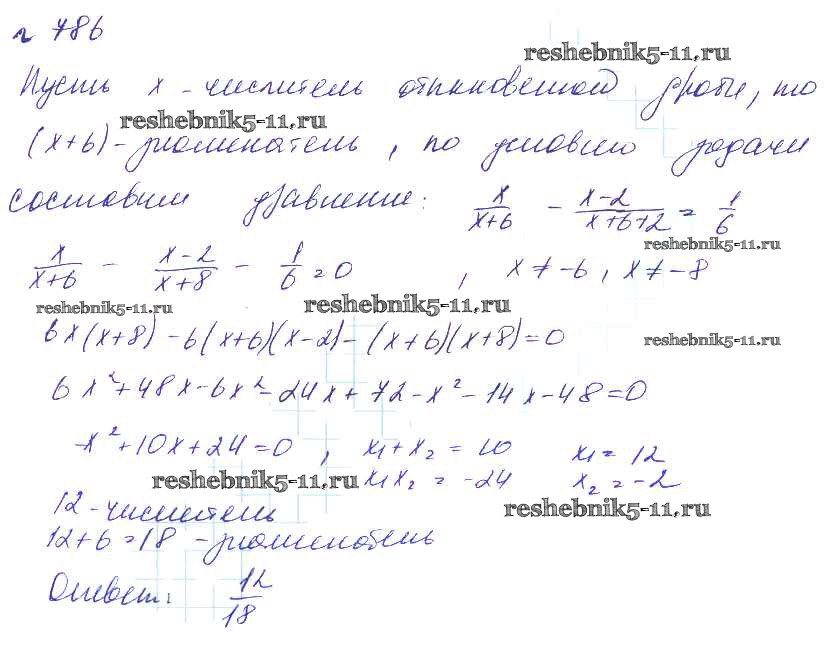 № 786
reshebnik5-11.ru
Пусть x - числитель обыкновенной дроби, то
reshebnik5-11.ru
(x+6) - знаменатель, по условию задачи
составим уравнение: x/(x+6) - (x-2)/(x+6+2) = 1/6
reshebnik5-11.ru
x/(x+6) - (x-2)/(x+8) - 1/6 = 0 , x ≠ -6, x ≠ -8
reshebnik5-11.ru reshebnik5-11.ru
6x(x+8) - 6(x+6)(x-2) - (x+6)(x+8) = 0 reshebnik5-11.ru
6x² + 48x - 6x² - 24x + 72 - x² - 14x - 48 = 0
-x² + 10x + 24 = 0 , x₁ + x₂ = 10 x₁ = 12
reshebnik5-11.ru x₁x₂ = -24 x₂ = -2
12 - числитель reshebnik5-11.ru
12+6=18 - знаменатель
Ответ: 12/18